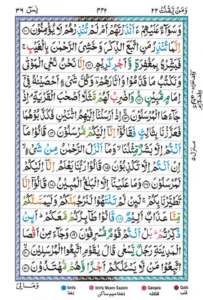 وَمَنْ يَّقْنُتْ ٢٢ يٰسٓ ٣٦
وَسَوَآءٌ عَلَيْهِمْ ءَاَنْذَرْتَهُمْ اَمْ لَمْ تُنْذِرْهُمْ لَا يُؤْمِنُوْنَ
اِنَّمَا تُنْذِرُ مَنِ اتَّبَعَ الذِّكْرَ وَخَشِيَ الرَّحْمٰنَ بِالْغَيْبِ
فَبَشِّرْهُ بِمَغْفِرَةٍ وَّاَجْرٍ كَرِيْمٍ اِنَّا نَحْنُ نُحْيِ الْمَوْتٰى
وَنَكْتُبُ مَا قَدَّمُوْا وَاٰثَارَهُمْ وَكُلَّ شَيْءٍ اَحْصَيْنٰهُ فِيْٓ
اِمَامٍ مُّبِيْنٍ وَاضْرِبْ لَهُمْ مَّثَلًا اَصْحٰبَ الْقَرْيَةِ اِذْ
جَآءَهَا الْمُرْسَلُوْنَ اِذْ اَرْسَلْنَآ اِلَيْهِمُ اثْنَيْنِ فَكَذَّبُوْهُمَا
فَعَزَّزْنَا بِثَالِثٍ فَقَالُوْٓا اِنَّآ اِلَيْكُمْ مُّرْسَلُوْنَ قَالُوْا مَآ
اَنْتُمْ اِلَّا بَشَرٌ مِّثْلُنَا وَمَآ اَنْزَلَ الرَّحْمٰنُ مِنْ شَيْءٍ اِنْ
اَنْتُمْ اِلَّا تَكْذِبُوْنَ قَالُوْا رَبُّنَا يَعْلَمُ اِنَّآ اِلَيْكُمْ
لَمُرْسَلُوْنَ وَمَا عَلَيْنَآ اِلَّا الْبَلٰغُ الْمُبِيْنُ قَالُوْٓا اِنَّا
تَطَيَّرْنَا بِكُمْ لَئِنْ لَّمْ تَنْتَهُوْا لَنَرْجُمَنَّكُمْ وَلَيَمَسَّنَّكُمْ
مِّنَّا عَذَابٌ اَلِيْمٌ قَالُوْا طَآئِرُكُمْ مَّعَكُمْ اَئِنْ
ذُكِّرْتُمْ بَلْ اَنْتُمْ قَوْمٌ مُّسْرِفُوْنَ وَجَآءَ مِنْ اَقْصَا
الْمَدِيْنَةِ رَجُلٌ يَّسْعٰى قَالَ يٰقَوْمِ اتَّبِعُوا الْمُرْسَلِيْنَ
اتَّبِعُوْا مَنْ لَّا يَسْـَٔلُكُمْ اَجْرًا وَّهُمْ مُّهْتَدُوْنَ
وَمَالِيَ
Ikhfa Ikhfa Meem Saakin Qalqala